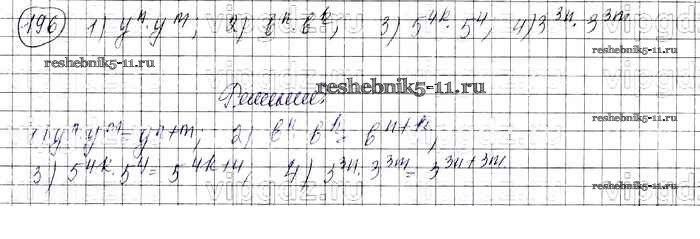 196 1) yⁿ·yᵐ; 2) bⁿ·bᵏ; 3) 5⁴ᵏ·5⁴, 4) 3³ⁿ·3³ᵐ
reshebnik5-11.ru
reshebnik5-11.ru
Решение:
1) yⁿ·yᵐ = yⁿ⁺ᵐ; 2) bⁿ·bᵏ = bⁿ⁺ᵏ;
3) 5⁴ᵏ·5⁴ = 5⁴ᵏ⁺⁴, 4) 3³ⁿ·3³ᵐ = 3³ⁿ⁺³ᵐ
reshebnik5-11.ru